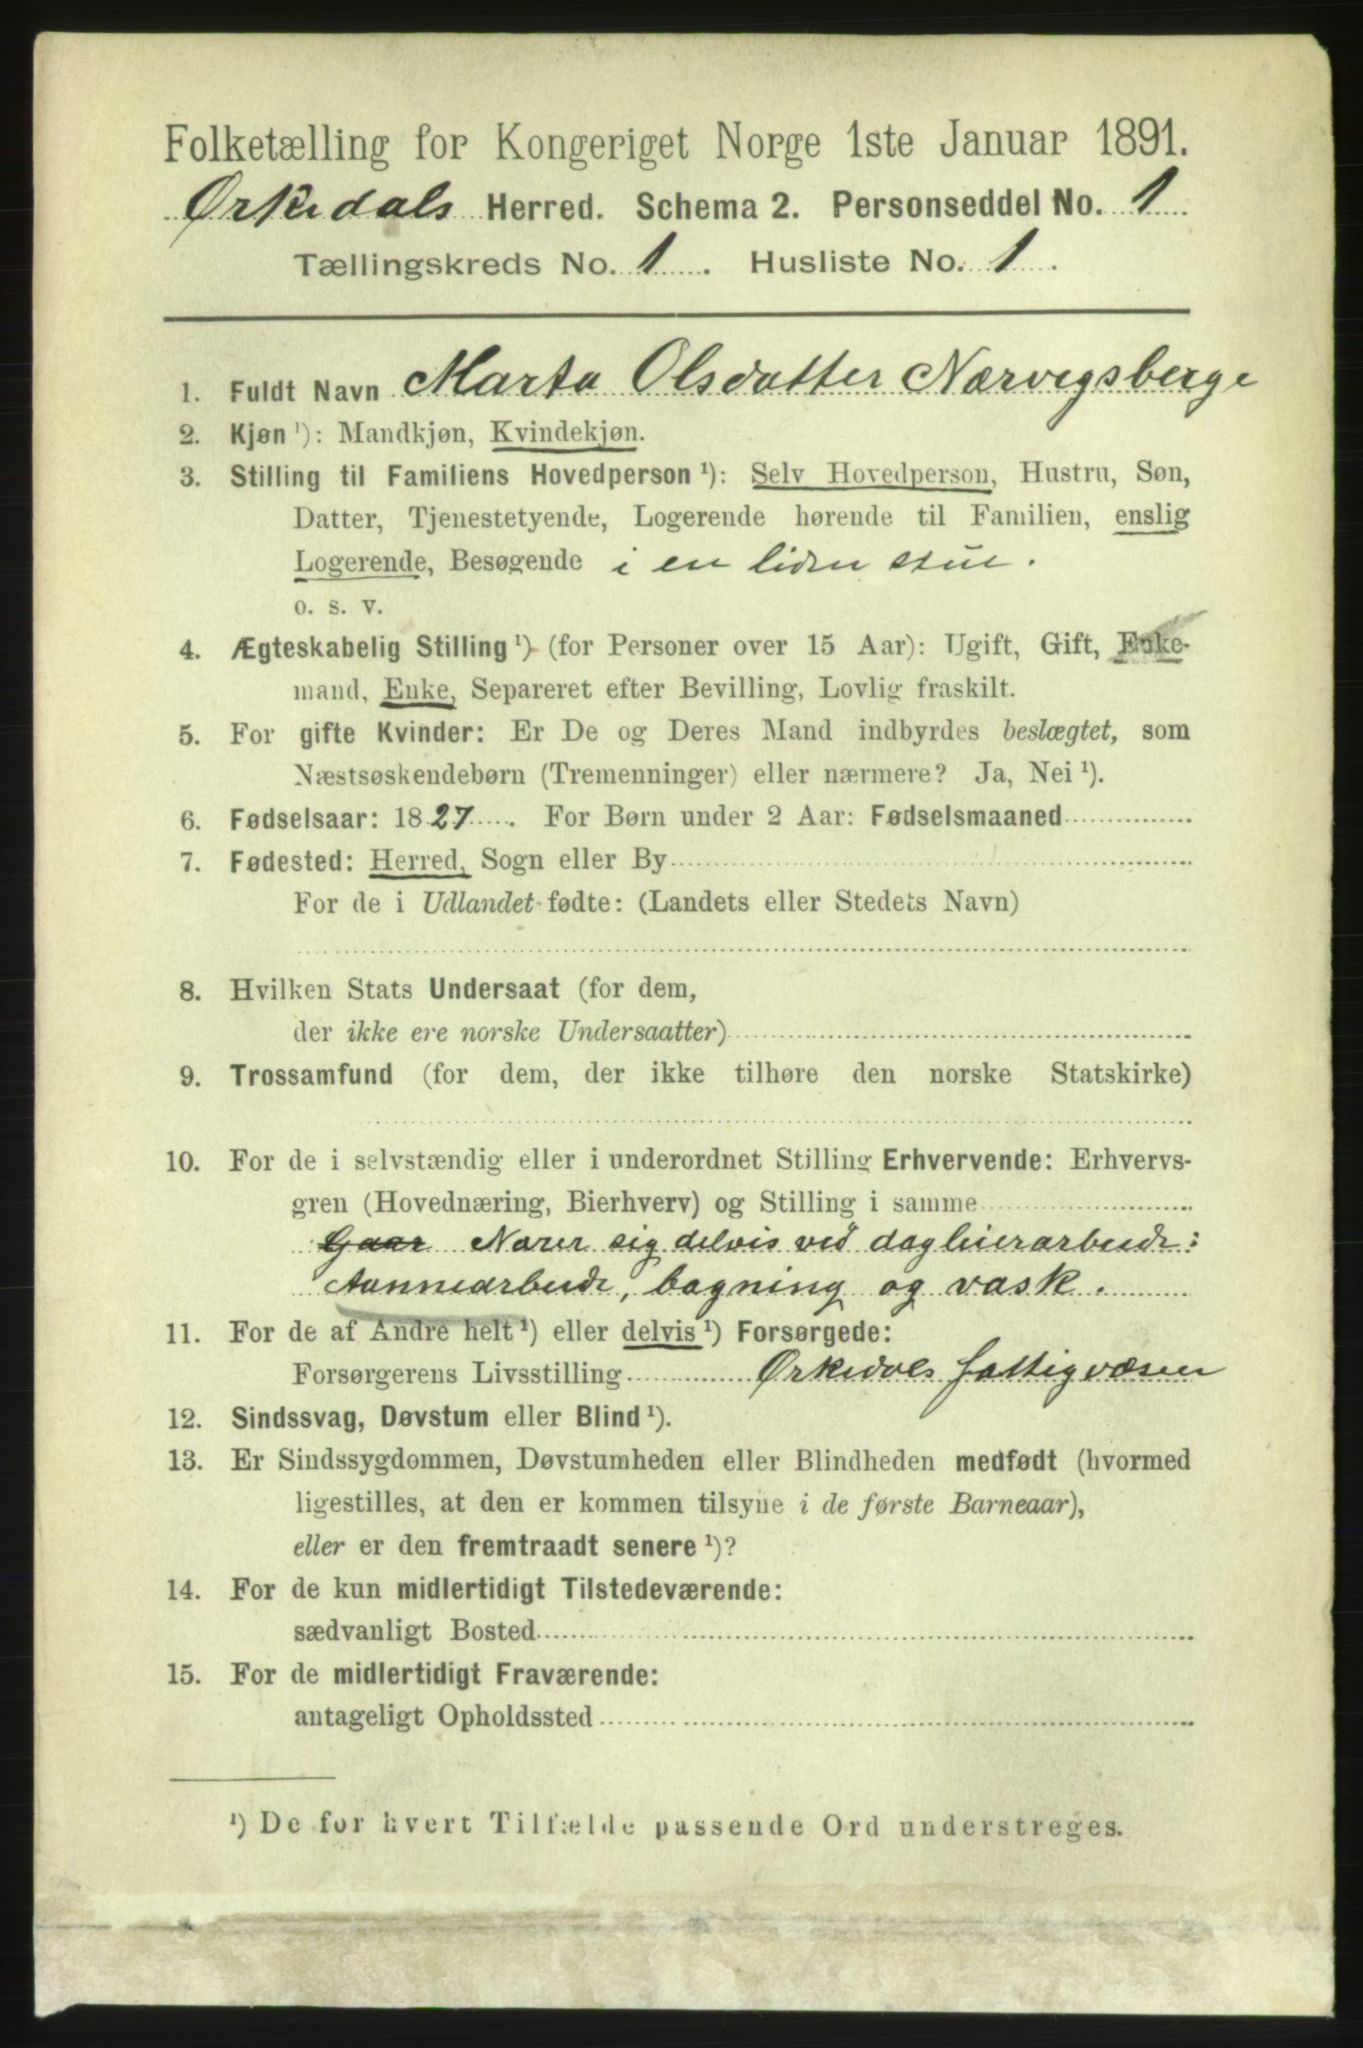 Folketælling for Kongeriget Norge 1ste Januar 1891.
Ørkedals Herred. Schema 2. Personseddel No. 1
Tællingskreds No. 1. Husliste No. 1.
1. Fuldt Navn Marta Olsdatter Nærvigsberge
2. Kjøn ¹): Mandkjøn, Kvindekjøn.
3. Stilling til Familiens Hovedperson ¹): Selv Hovedperson, Hustru, Søn,
Datter, Tjenestetyende, Logerende hørende til Familien, enslig
Logerende, Besøgende i en liden stue.
o. s. v.
4. Ægteskabelig Stilling ¹) (for Personer over 15 Aar): Ugift, Gift, Enke-
mand, Enke, Separeret efter Bevilling, Lovlig fraskilt.
5. For gifte Kvinder: Er De og Deres Mand indbyrdes beslægtet, som
Næstsøskendebørn (Tremenninger) eller nærmere? Ja, Nei ¹).
6. Fødselsaar: 1827. For Børn under 2 Aar: Fødselsmaaned
7. Fødested: Herred, Sogn eller By
For de i Udlandet fødte: (Landets eller Stedets Navn)
8. Hvilken Stats Undersaat (for dem,
der ikke ere norske Undersaatter)
9. Trossamfund (for dem, der ikke tilhøre den norske Statskirke)
10. For de i selvstændig eller i underordnet Stilling Erhvervende: Erhvervs-
gren (Hovednæring, Bierhverv) og Stilling i samme
Gaar Nærer sig delvis ved dagleierarbeide:
Aannearbeide, bagning og vask.
11. For de af Andre helt ¹) eller delvis ¹) Forsørgede:
Forsørgerens Livsstilling Ørkedals fattigvæsen
12. Sindssvag, Døvstum eller Blind ¹).
13. Er Sindssygdommen, Døvstumheden eller Blindheden medfødt (hvormed
ligestilles, at den er kommen tilsyne i de første Barneaar),
eller er den fremtraadt senere ¹)?
14. For de kun midlertidigt Tilstedeværende:
sædvanligt Bosted
15. For de midlertidigt Fraværende:
antageligt Opholdssted
¹) De for hvert Tilfælde passende Ord understreges.